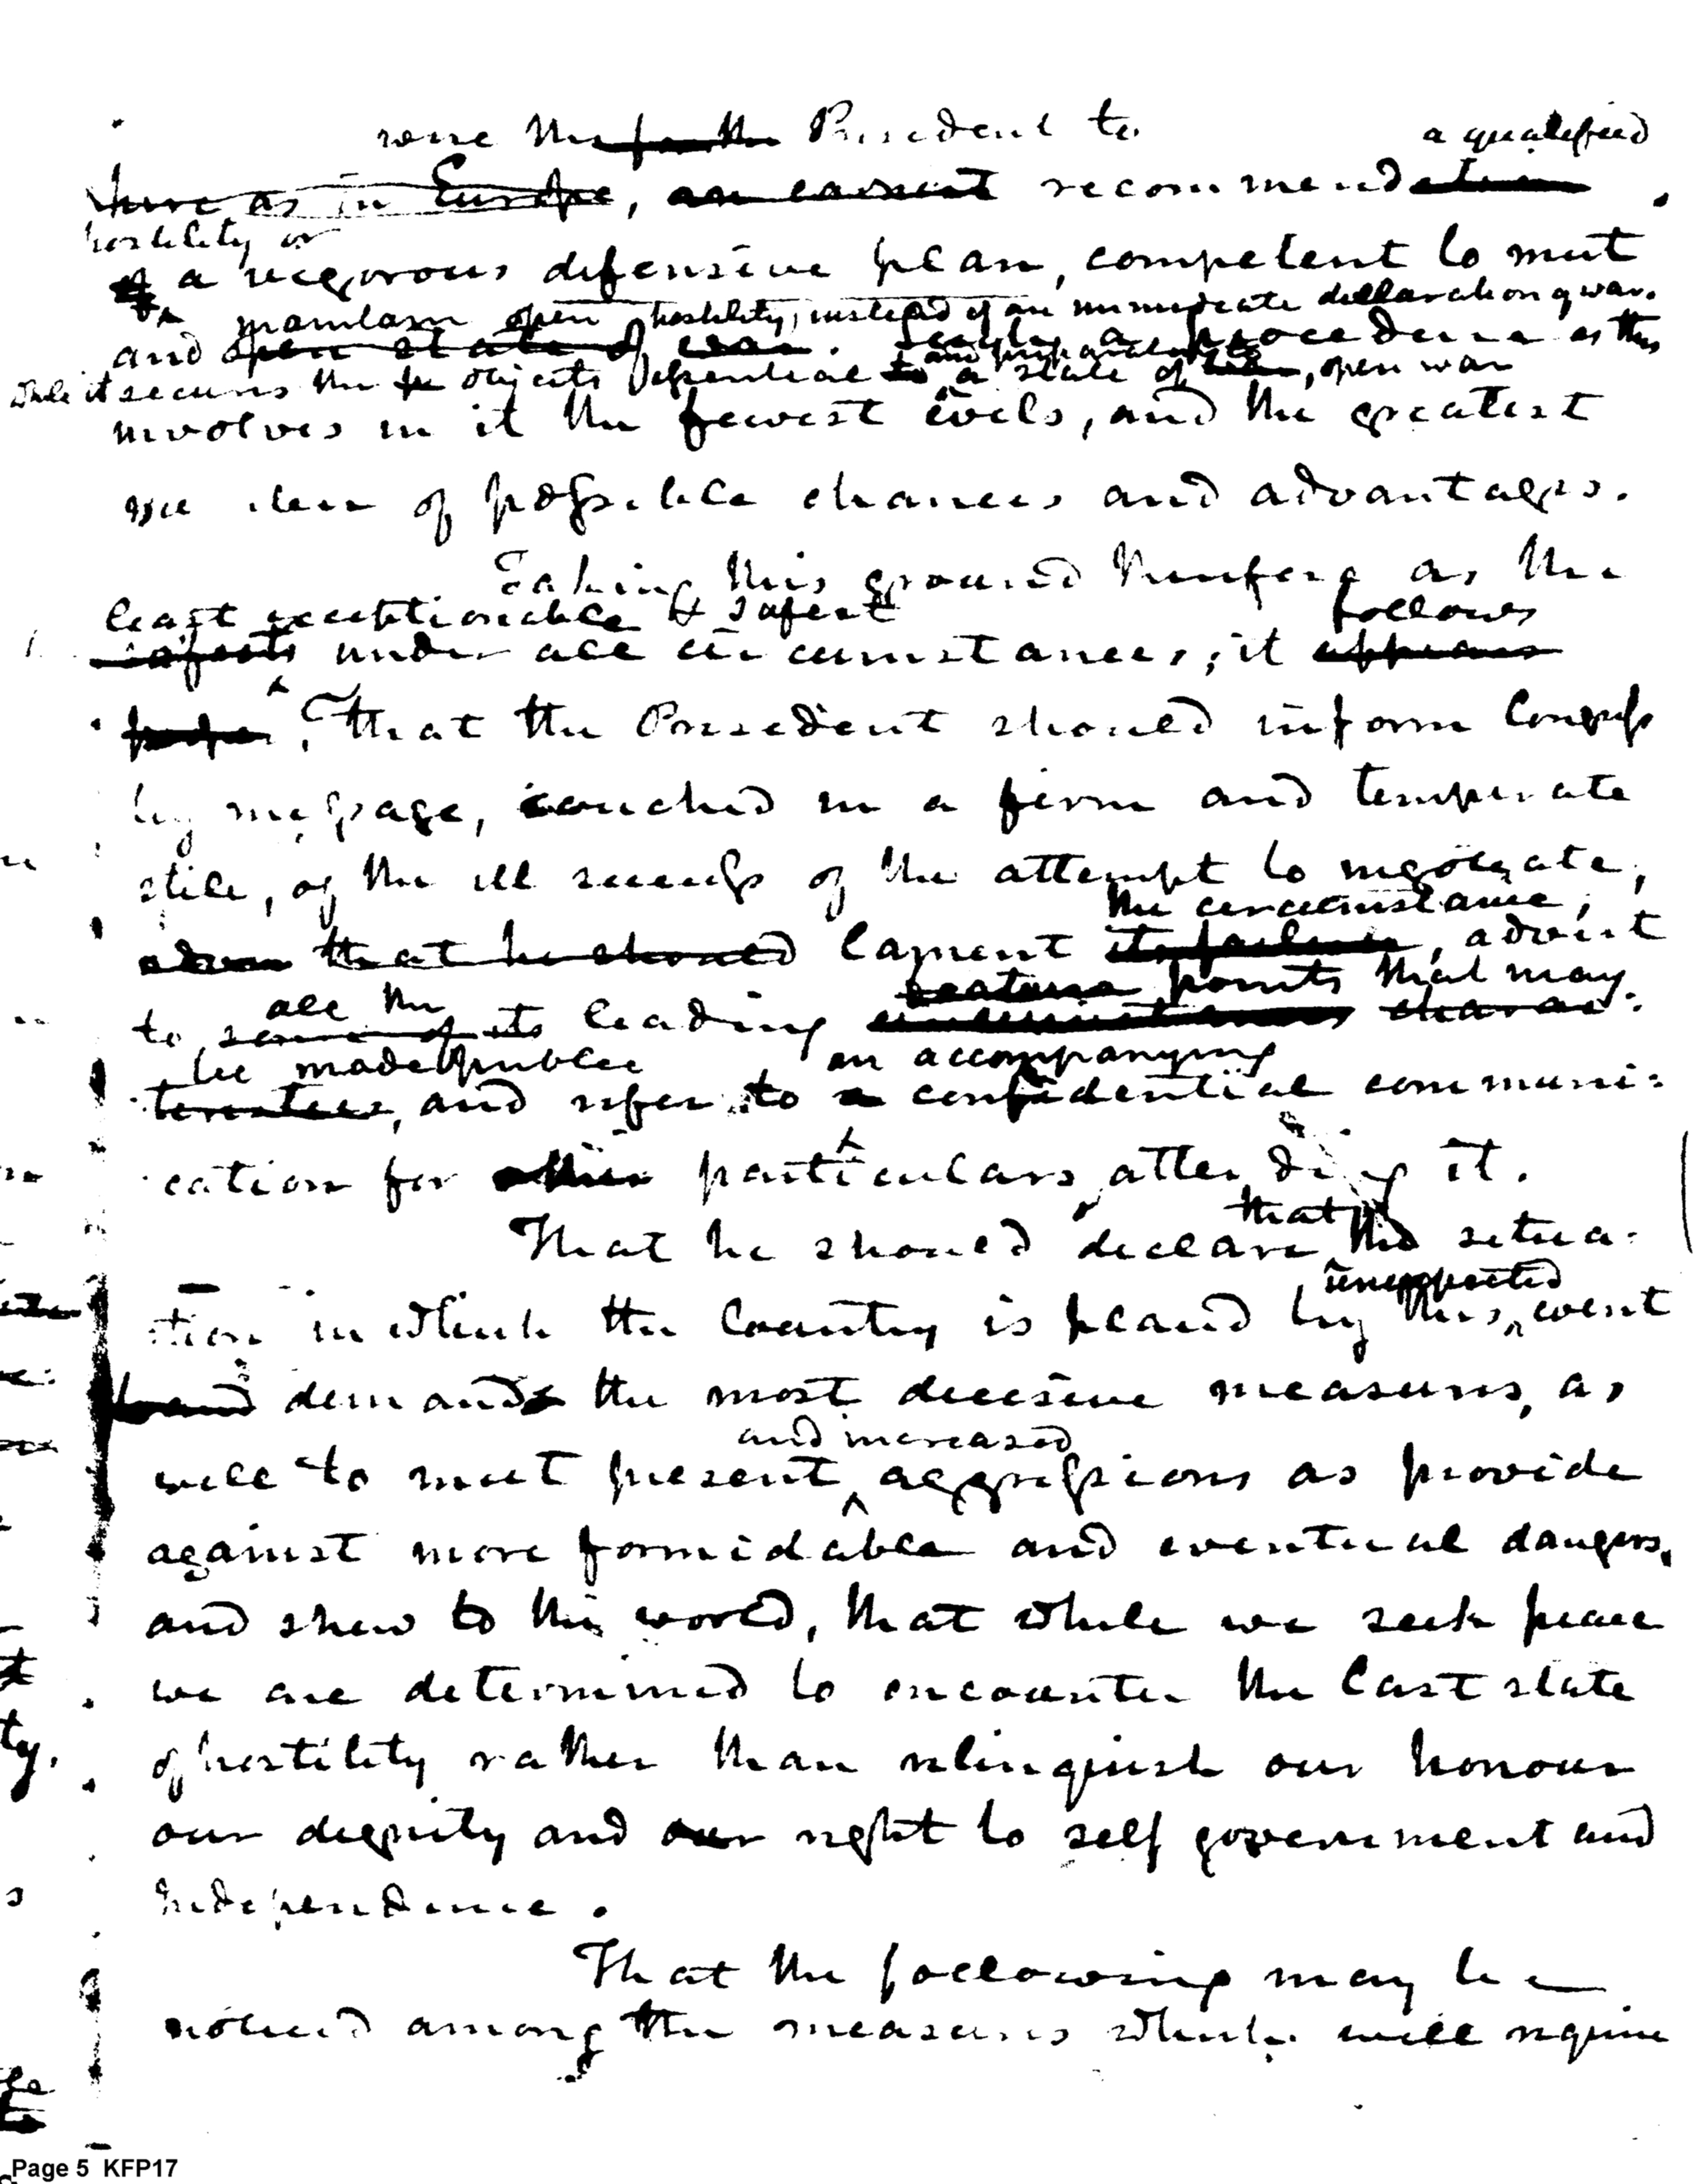 were the for the President to a qualified
here as in Europe, an earnest recommendation
hostility or
of a vigorous defensive plan, competent to meet
maintain open hostility, instead of an immediate declaration of war.
and open state of war. Such a procedure as this
while it secures the objects essential to and preparatory to a state of open war
involves in it the fewest evils, and the greatest
number of possible chances and advantages.
Taking this ground therefore as the
least exceptionable & safest follows
safest under all circumstances, it appears
proper, That the President should inform Congress
by message, couched in a firm and temperate
stile, of the ill success of the attempt to negotiate,
the circumstance,
that he should lament its failure, advert
all the feature points that may
to some of its leading circumstances charac-
be made publec an accompanying
teristics, and refer to a confidential communi-
cation for particulars attending it.
that
That he should declare the situa-
unexpected
tion in which the Country is placed by this event
demands the most decisive measures, as
and increased
well to meet present aggressions as provide
against more formidable and eventual dangers,
and shew to the world, that while we seek peace
we are determined to encounter the last state
of hostility rather than relinquish our honour
our dignity and our right to self government and
Independence.
That the following may be
noticed among the measures which will require
Page 5 KFP17